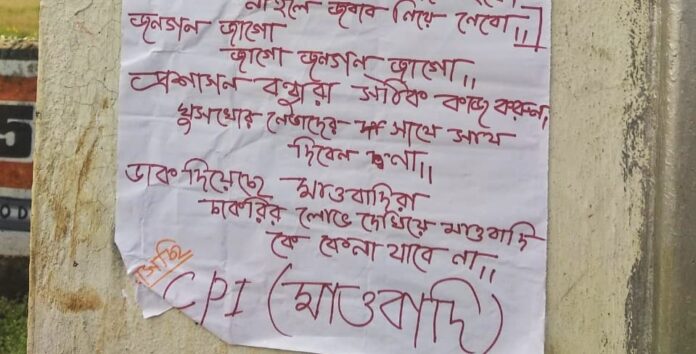 নাহলে জবাব নিয়ে নেবো।।]
জনগন জাগো
জাগো জনগন জাগো।।
প্রশাসন বন্ধুরা সঠিক কাজ করুন,
ঘুসখোর নেতাদের সাথে সাথ
দিবেন না।।
ডাক দিয়েছে মাওবাদিরা
চাকরির লোভ দেখিয়ে মাওবাদি
কে কেনা যাবে না।।
CPI (মাওবাদি)
5
OD